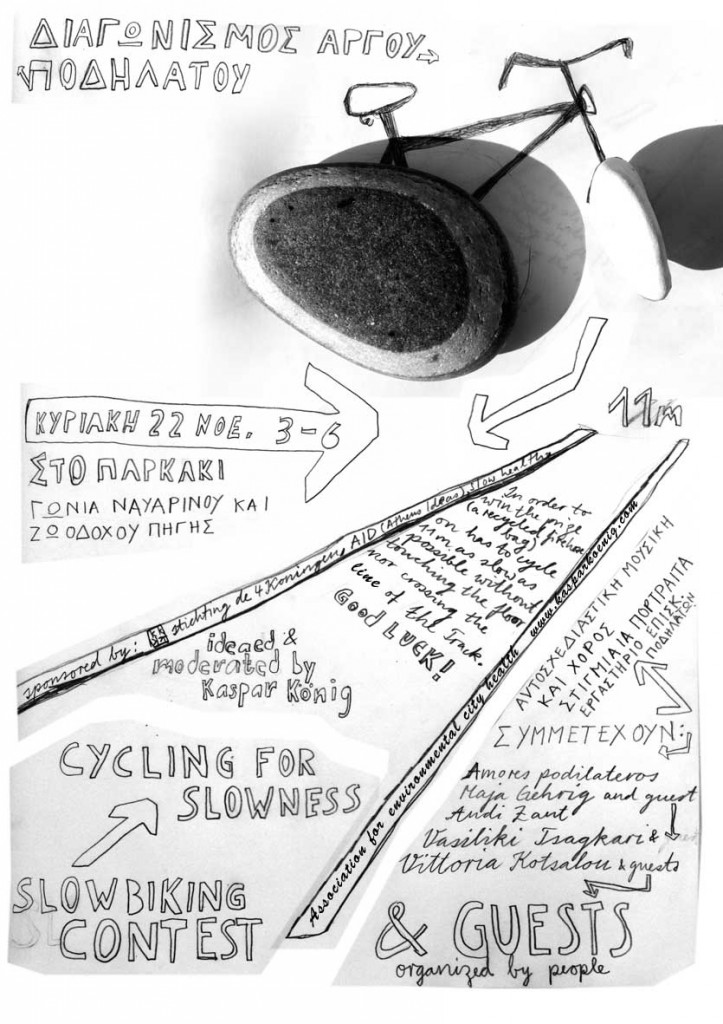 ΔΙΑΓΩΝΙΣΜΟΣ ΑΡΓΟΥ
ΠΟΔΗΛΑΤΟΥ
ΚΥΡΙΑΚΗ 22 ΝΟΕ. 3-6
ΣΤΟ ΠΑΡΚΑΚΙ
ΓΩΝΙΑ ΝΑΥΑΡΙΝΟΥ ΚΑΙ
ΖΩΟΔΟΧΟΥ ΠΗΓΗΣ
11m
In order to
win the prize
(a recycled firehose
bag)
on has to cycle
11m as slow as
possible without
touching the floor
nor crossing the
line of the Track.
Good LUCK!
sponsored by: stichting de 4 Koningen, AID (Athens Ideas), slow health
ideaed &
moderated by
Kaspar König
Association for environmental city health www.kasparkoenig.com
ΑΥΤΟΣΧΕΔΙΑΣΤΙΚΗ ΜΟΥΣΙΚΗ
ΚΑΙ ΧΟΡΟΣ
ΣΤΙΓΜΙΑΙΑ ΠΟΡΤΡΑΙΤΑ
ΕΡΓΑΣΤΗΡΙΟ ΕΠΙΣΚ.
ΠΟΔΗΛΑΤΩΝ
ΣΥΜΜΕΤΕΧΟΥΝ:
Amores podilateros
Maja Gehrig and guest
Andi Zant
Vasiliki Tsagkari &
Vittoria Kotsalou & guests
& GUESTS
organized by people
CYCLING FOR
SLOWNESS
SLOWBIKING
CONTEST